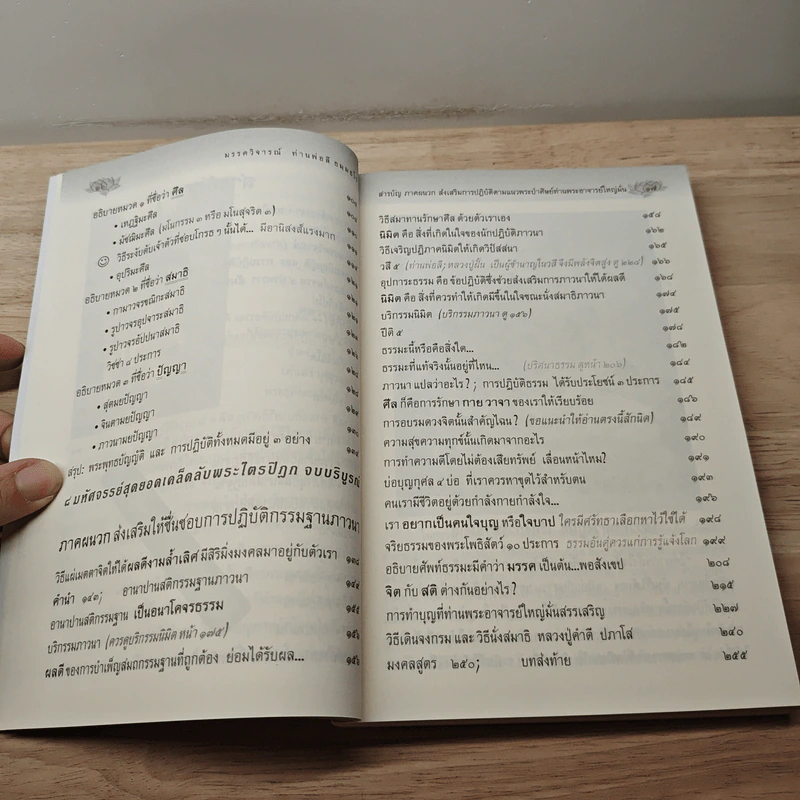 มรรควิจารณ์ ท่านพ่อลี
อธิบายหมวด ๑ ที่ชื่อว่า ศีล
• เหฏฐิมะศีล
• มัชฌิมะศีล (มโนกรรม ๓ หรือ มโนสุจริต ๓)
วิธีระงับดับเจ้าตัวที่ชอบโกรธ ๆ นั้นได้... มีอานิสงส์แรงมาก
• อุปริมะศีล
อธิบายหมวด ๒ ที่ชื่อว่า สมาธิ
• กามาวจรขณิกะสมาธิ
• รูปาวจรอุปจาระสมาธิ
• รูปาวจรอัปปนาสมาธิ
วิชชา ๘ ประการ
อธิบายหมวด ๓ ที่ชื่อว่า ปัญญา
• สุตมยปัญญา
• จินตามยปัญญา
• ภาวนามยปัญญา
สรุป: พระพุทธบัญญัติ และ การปฏิบัติทั้งหมดมีอยู่ ๓ อย่าง
๘ มหัศจรรย์สุดยอดเคล็ดลับพระไตรปิฎก จบบริบูรณ์
ภาคผนวก ส่งเสริมให้ชื่นชอบการปฏิบัติกรรมฐานภาวนา
วิธีแผ่เมตตาจิตให้ได้ผลดีงามล้ำเลิศ มีสิริมิ่งมงคลมาอยู่กับตัวเรา ๑๓๘
คำนำ ๑๔๓; อานาปานสติกรรมฐานภาวนา ๑๔๕
อานาปานสติกรรมฐาน เป็นอนาโคจรธรรม ๑๕๕
บริกรรมภาวนา (ควรดูบริกรรมนิมิต หน้า ๑๗๕) ๑๕๖
ผลดี ของการบำเพ็ญสมถกรรมฐานที่ถูกต้อง ย่อมได้รับผล... ๑๕๖
สารบัญ ภาคผนวก ส่งเสริมการปฏิบัติตามแนวพระป่าศิษย์ท่านพระอาจารย์ใหญ่มั่น
วิธีสมาทานรักษาศีล ด้วยตัวเราเอง ๑๕๘
นิมิต คือ สิ่งที่เกิดในใจของนักปฏิบัติภาวนา ๑๖๒
วิธีเจริญปฏิภาคนิมิตให้เกิดวิปัสสนา ๑๖๕
วสี ๕ (ท่านพ่อลี; หลวงปู่มั่น เป็นผู้ชำนาญในวสี จึงมีพลังจิตสูง ดู ๒๒๘) ๑๖๖
อุปการะธรรม คือ ข้อปฏิบัติซึ่งช่วยส่งเสริมการภาวนาให้ได้ผลดี ๑๖๘
นิมิต คือ สิ่งที่ควรทำให้เกิดมีขึ้นในใจขณะนั่งสมาธิภาวนา ๑๗๔
บริกรรมนิมิต (บริกรรมภาวนา ดู ๑๕๖) ๑๗๕
ปีติ ๕ ๑๗๘
ธรรมะนี้หรือคือสิ่งใด... ๑๘๒
ธรรมะที่แท้จริงนั้นอยู่ที่ไหน... (ปริศนาธรรม ดูหน้า ๒๐๖) ๑๘๔
ภาวนา แปลว่าอะไร? ; การปฏิบัติธรรม ได้รับประโยชน์ ๓ ประการ ๑๘๕
ศีล ก็คือการรักษา กาย วาจา ของเราให้เรียบร้อย ๑๘๖
การอบรมดวงจิตนั้นสำคัญไฉน? (ขอแนะนำให้อ่านตรงนี้สักนิด) ๑๘๙
ความสุขความทุกข์นั้นเกิดมาจากอะไร ๑๙๐
การทำความดีโดยไม่ต้องเสียทรัพย์ เลื่อนหน้าไหม? ๑๙๑
บ่อบุญกุศล ๔ บ่อ ที่เราควรหาขุดไว้สำหรับตน ๑๙๓
คนเรามีชีวิตอยู่ด้วยกำลังกายกำลังใจ... ๑๙๖
เรา อยากเป็นคนใจบุญ หรือใจบาป ใครมีศรัทธาเลือกหาไว้ใช้ได้ ๑๙๘
จริยธรรมของพระโพธิสัตว์ ๑๐ ประการ ธรรมอันคู่ควรแก่การรู้แจ้งโลก ๑๙๙
อธิบายศัพท์ธรรมะมีคำว่า มรรค เป็นต้น...พอสังเขป ๒๐๘
จิต กับ สติ ต่างกันอย่างไร? ๒๑๕
การทำบุญที่ท่านพระอาจารย์ใหญ่มั่นสรรเสริญ ๒๒๗
วิธีเดินจงกรม และ วิธีนั่งสมาธิ หลวงปู่คำดี ปภาโส ๒๔๐
มงคลสูตร ๒๕๐; บทส่งท้าย ๒๕๕